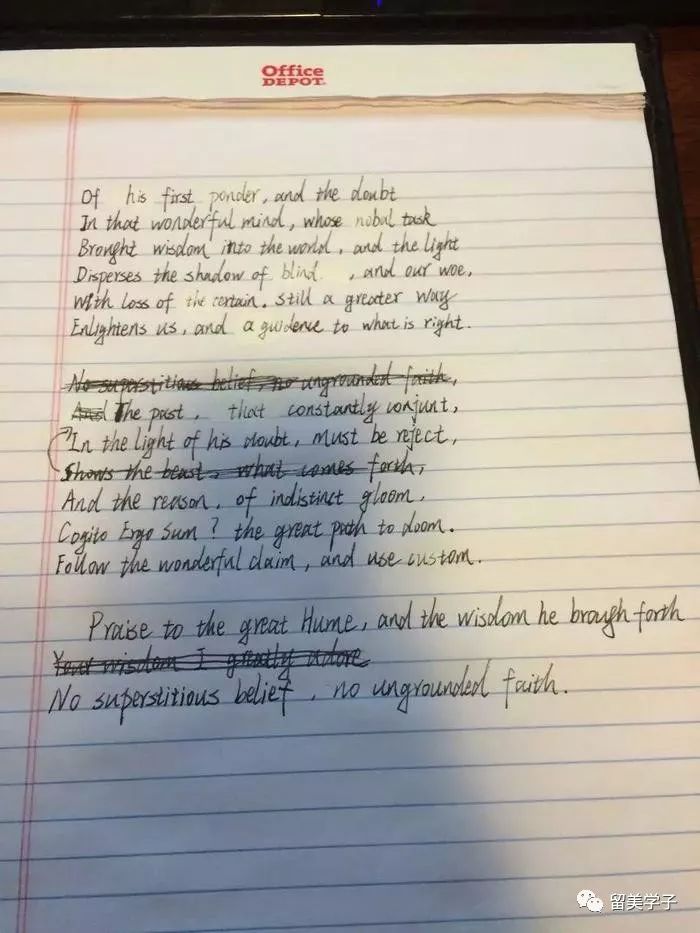 Office
DEPOT
Of his first ponder, and the doubt
In that wonderful mind, whose nobal task
Brought wisdom into the world, and the light
Disperses the shadow of blind , and our woe,
With loss of the certain. still a greater way
Enlightens us, and a guidence to what is right.
No superstitious belief, no ungrounded faith,
And The past, that constantly conjunt,
In the light of his doubt, must be reject,
Shows the beast, what comes forth,
And the reason, of indistinct gloom,
Cogito Ergo Sum? the great path to doom.
Follow the wonderful claim, and use custom.
Praise to the great Hume, and the wisdom he brough forth
Your wisdom I greatly adore
No superstitious belief, no ungrounded faith.
留美学子